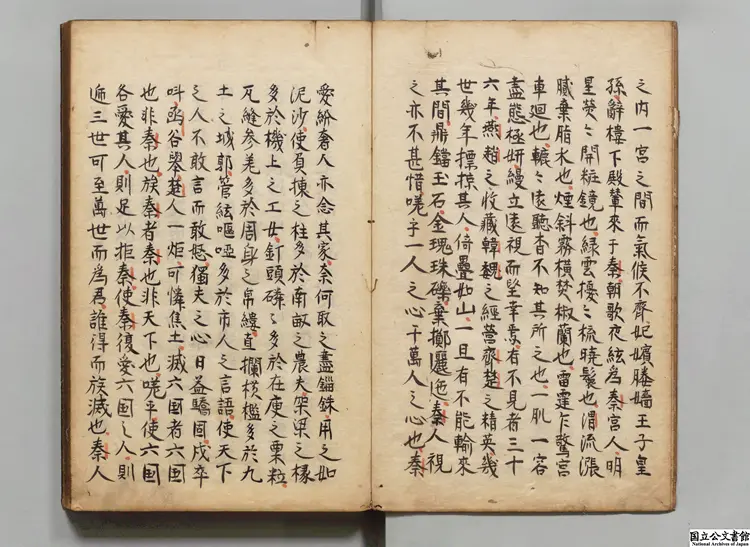 之内一宮之間而氣候不齊妃嬪媵嬙王子皇
孫辭樓下殿輦來于秦朝歌夜絃爲秦宮人明
星熒〻開粧鏡也緑雲擾〻梳曉鬟也渭流漲
膩棄脂水也煙斜霧橫焚椒蘭也雷霆乍驚宮
車迴也轆〻遠聽杳不知其所之也一肌一容
盡態極妍縵立遠視而望幸焉有不見者三十
六年燕趙之收藏韓魏之經營齊楚之精英幾
世幾年摽掠其人倚疊如山一旦有不能輸來
其間鼎鐺玉石金瑰珠礫棄擲邐迤秦人視
之亦不甚惜嗟乎一人之心千萬人之心也秦
愛紛奢人亦念其家奈何取之盡錙銖用之如
泥沙使負棟之柱多於南畝之農夫架梁之椽
多於機上之工女釘頭磷〻多於在庾之粟粒
瓦縫參差多於周身之帛縷直欄橫檻多於九
土之城郭管絃嘔啞多於市人之言語使天下
之人不敢言而敢怒獨夫之心日益驕固戍卒
叫函谷舉楚人一炬可憐焦土滅六国者六国
也非秦也族秦者秦也非天下也嗟乎使六国
各愛其人則足以拒秦使秦復愛六国之人則
遞三世可至萬世而爲君誰得而族滅也秦人
国立公文書館
National Archives of Japan